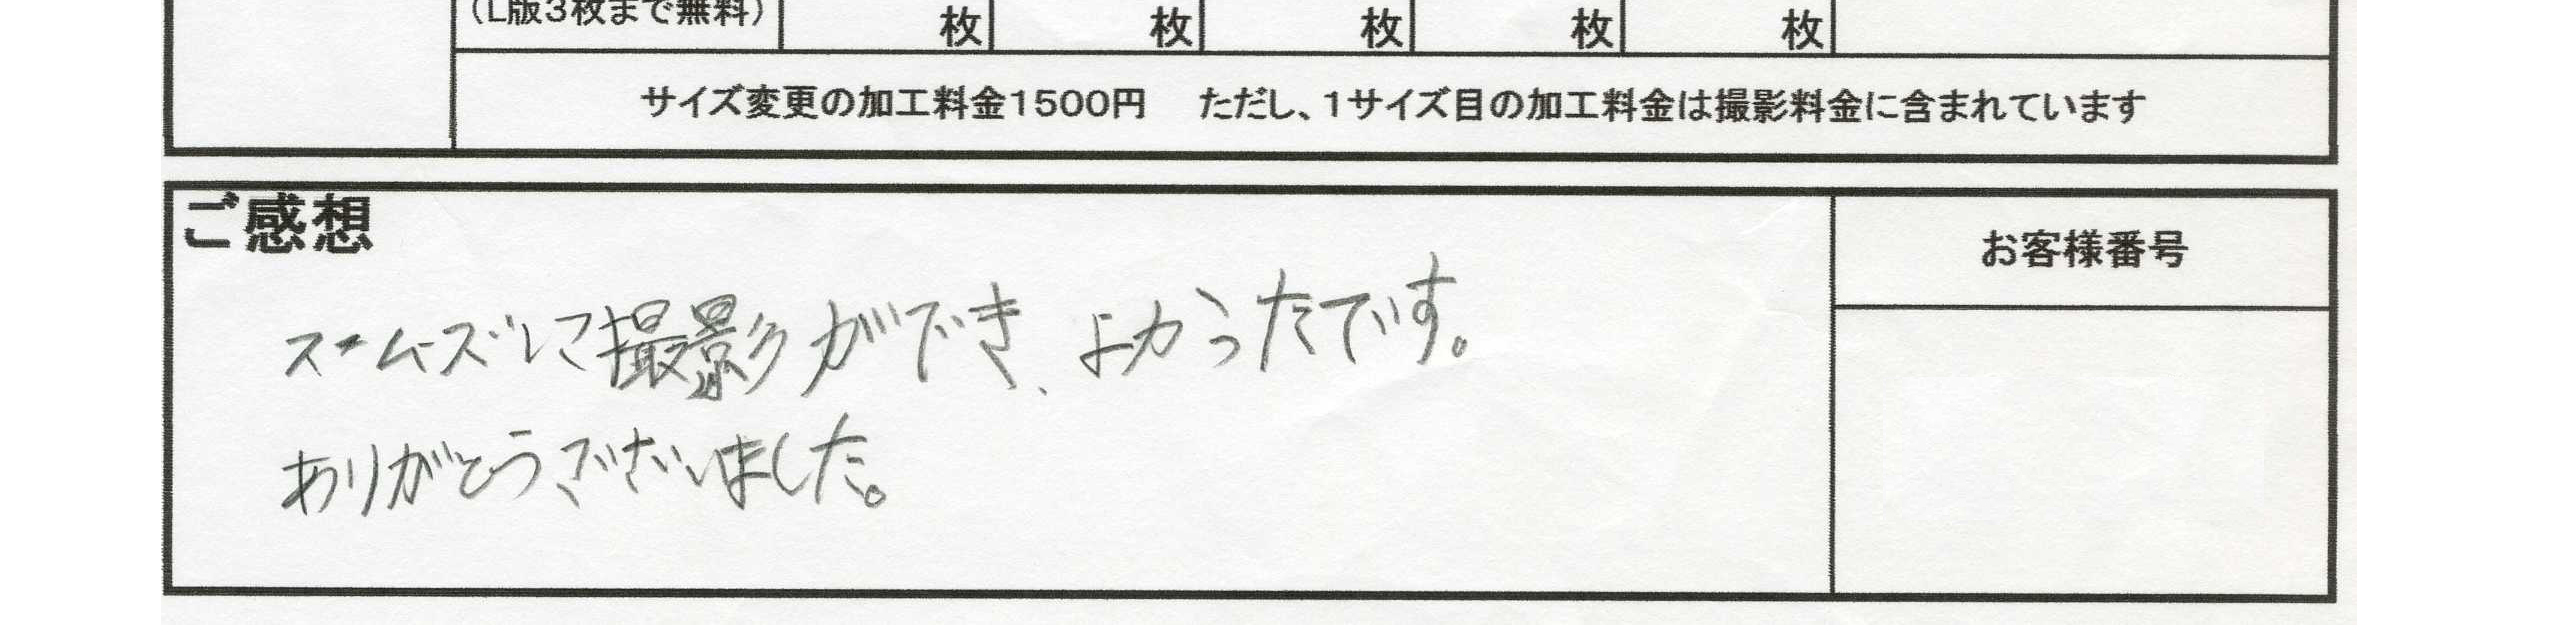 (L版3枚まで無料) 枚 枚 枚 枚 枚
サイズ変更の加工料金1500円　ただし、1サイズ目の加工料金は撮影料金に含まれています
ご感想
お客様番号
スームズに撮影ができ、よかったです。
ありがとうございました。